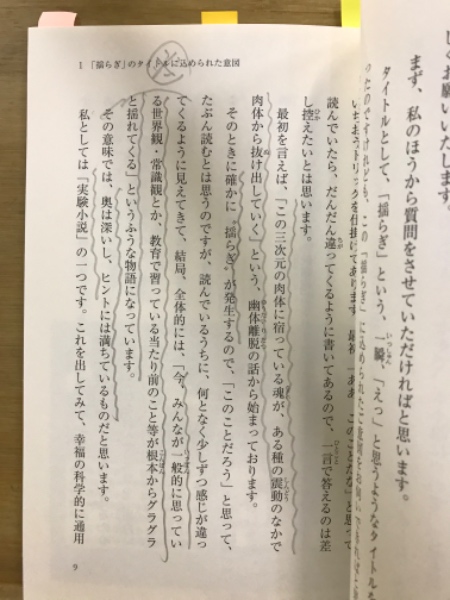 しくお願いいたします。
まず、私のほうから質問をさせていただければと思います。
タイトルとして、「揺らぎ」という、一瞬、「えっ」と思うようなタイトルな
ったのですけれども、この「揺らぎ」に込められたご意図をお伺いできればと
1 「揺らぎ」のタイトルに込められた意図
いちおうトリックを仕掛けてあります。最初、「ああ、このことだな」と思って
読んでいたら、だんだん違ってくるように書いてあるので、一言で答えるのは差
し控えたいとは思います。
最初を言えば、「この三次元の肉体に宿っている魂が、ある種の震動のなかで
肉体から抜け出していく」という、幽体離脱の話から始まっております。
そのときに確かに〝揺らぎ〟が発生するので、「このことだろう」と思って、
たぶん読むとは思うのですが、読んでいるうちに、何となく少しずつ感じが違っ
てくるように見えてきて、結局、全体的には、「今、みんなが一般的に思ってい
る世界観・常識観とか、教育で習っている当たり前のこと等が根本からグラグラ
と揺れてくる」というふうな物語になっています。
その意味では、奥は深いし、ヒントには満ちているものだと思います。
私としては「実験小説」の一つです。これを出してみて、幸福の科学的に通用
9